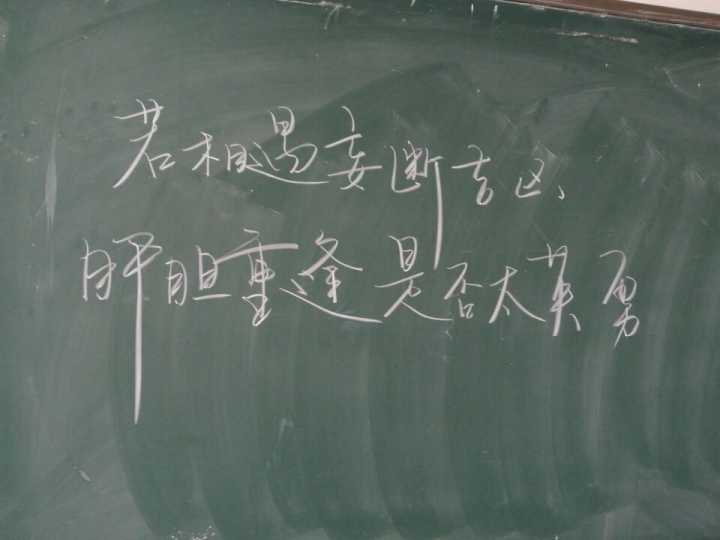 若相遇妄断吉凶、
肝胆重逢是否太英勇